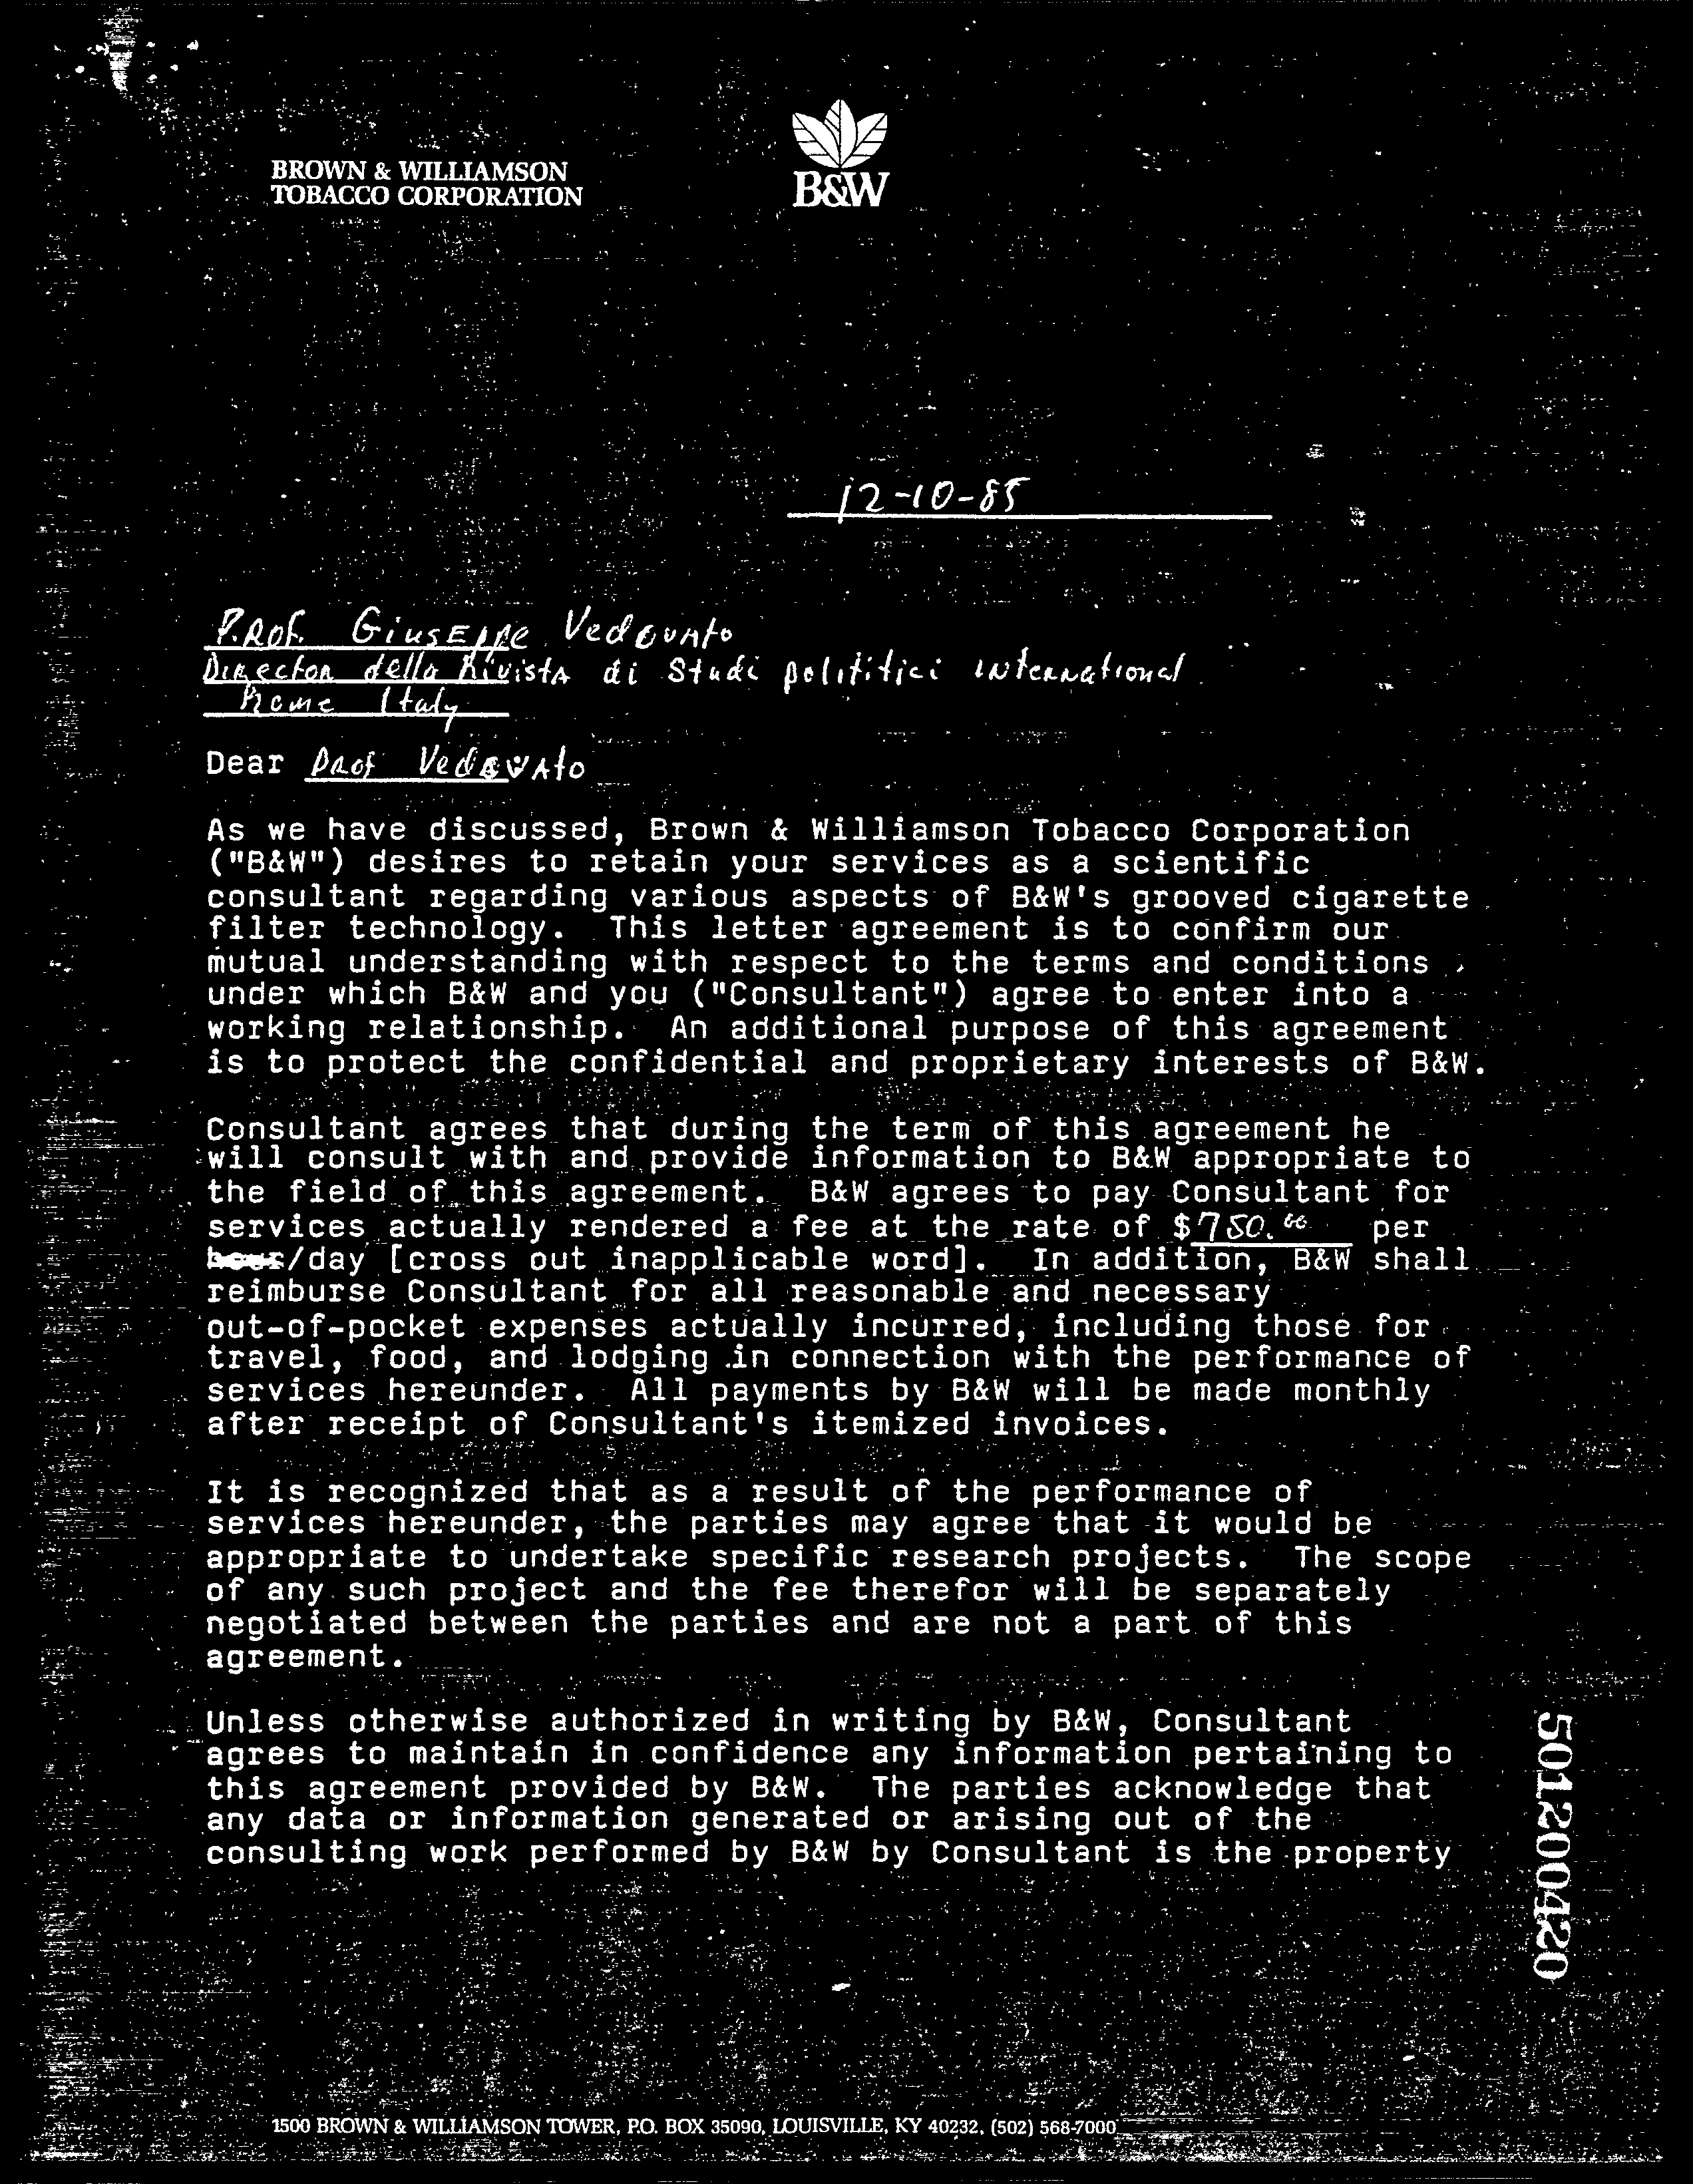 BROWN & WILLIAMSON
TOBACCO CORPORATION
B&W
12-10-85
Prof. Giuseppe Vedovato
Director della Rivista di Studi polititici international
Rome Italy
Dear Prof Vedovato
As we have discussed, Brown & Williamson Tobacco Corporation
("B&W") desires to retain your services as a scientific
consultant regarding various aspects of B&W's grooved cigarette
filter technology. This letter agreement is to confirm our
mutual understanding with respect to the terms and conditions
under which B&W and you ("Consultant") agree to enter into a
working relationship. An additional purpose of this agreement
is to protect the confidential and proprietary interests of B&W.
Consultant agrees that during the term of this agreement he
will consult with and provide information to B&W appropriate to
the field of this agreement. B&W agrees to pay Consultant for
services actually rendered a fee at the rate of $750.00 per
hour/day [cross out inapplicable word]. In addition, B&W shall
reimburse Consultant for all reasonable and necessary
out-of-pocket expenses actually incurred, including those for
travel, food, and lodging in connection with the performance of
services hereunder. All payments by B&W will be made monthly
after receipt of Consultant's itemized invoices.
It is recognized that as a result of the performance of
services hereunder, the parties may agree that it would be
appropriate to undertake specific research projects. The scope
of any such project and the fee therefor will be separately
negotiated between the parties and are not a part of this
agreement.
Unless otherwise authorized in writing by B&W, Consultant
agrees to maintain in confidence any information pertaining to
this agreement provided by B&W. The parties acknowledge that
any data or information generated or arising out of the
consulting work performed by B&W by Consultant is the property
501200420
1500 BROWN & WILLIAMSON TOWER, P.O. BOX 35090, LOUISVILLE, KY 40232, (502) 568-7000